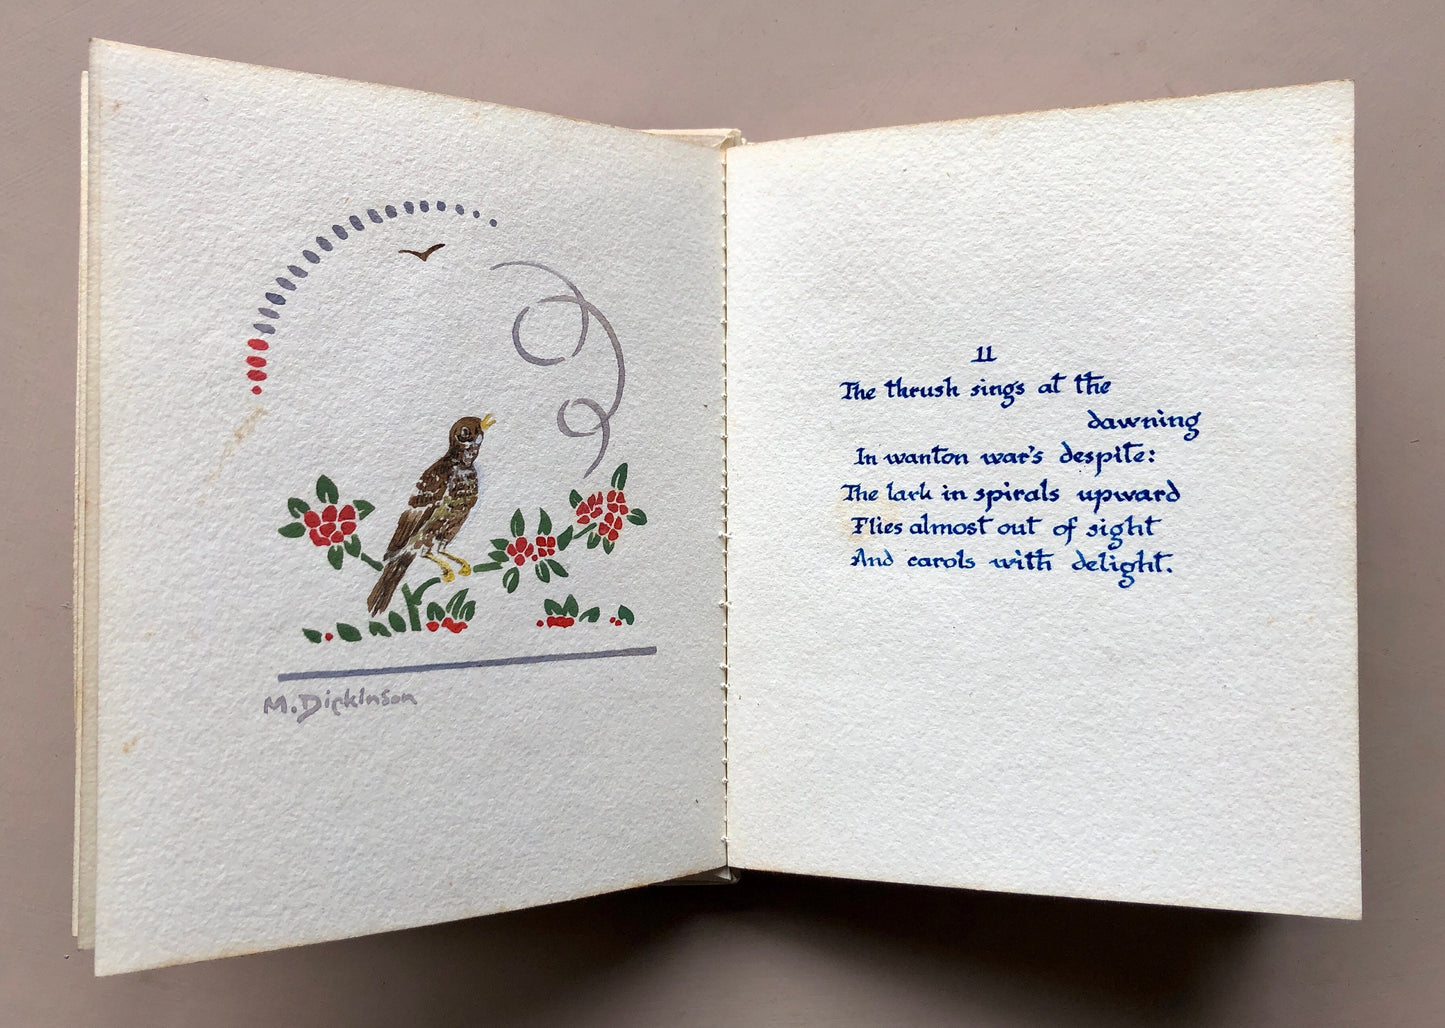 M. Dickinson
11
The thrush sings at the
dawning
In wanton war's despite:
The lark in spirals upward
Flies almost out of sight
And carols with delight.